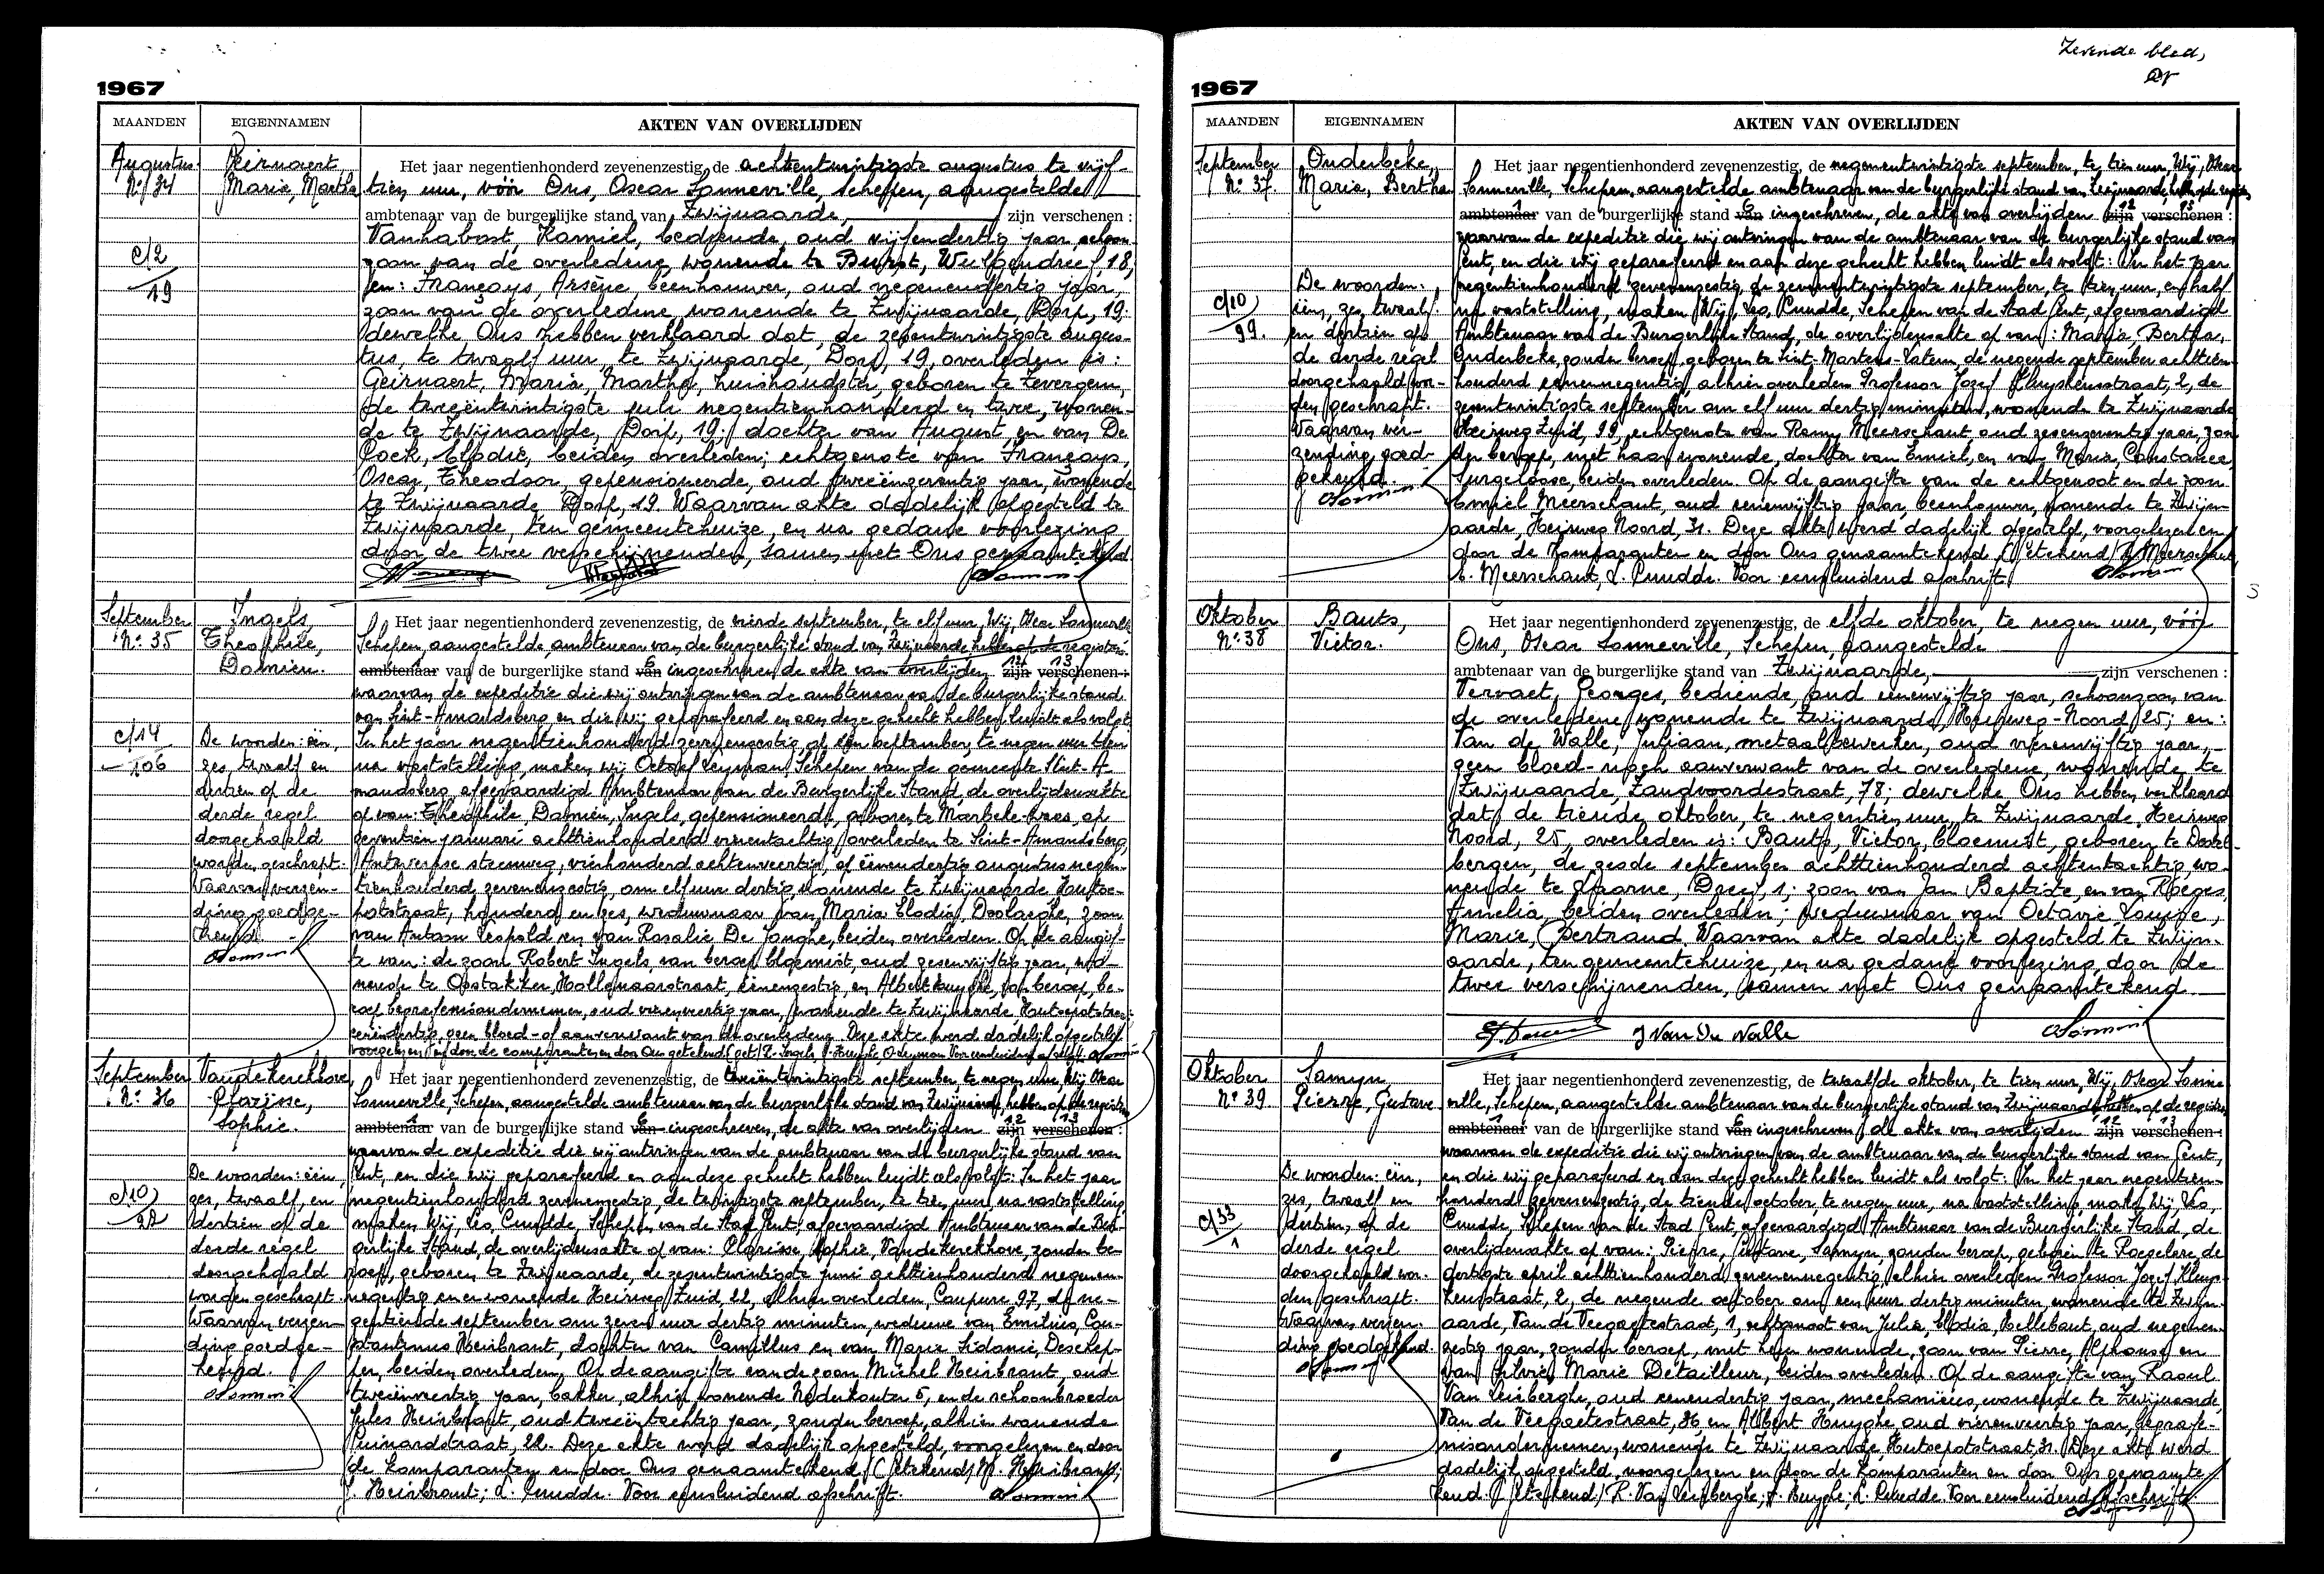 1967
MAANDEN EIGENNAMEN AKTEN VAN OVERLIJDEN
Augustus Nº 34
Geirnaert, Maria, Martha
c/2 19
Het jaar negentienhonderd zevenenzestig, de achtentwintigste augustus, te vijf-
tien uur, vóór Ons, Oscar Sonneville, Schepen, aangestelde
ambtenaar van de burgerlijke stand van Zwijnaarde, zijn verschenen :
Kamiel, bediende, oud vijfendertig jaar, schoon-
zoon van de overledene, wonende te 18,
en: Françays, Arsène, beenhouwer, oud negenendertig jaar,
zoon van de overledene, wonende te Zwijnaarde, Dorp, 19.
dewelke Ons hebben verklaard dat, de zevenentwintigste augus-
tus, te twaalf uur, te Zwijnaarde, Dorp, 19, overleden is :
Geirnaert, Maria, Martha, huishoudster, geboren te Zevergem,
de tweeëntwintigste juli negentienhonderd en twee, wonen-
de te Zwijnaarde, Dorp, 19; dochter van August, en van De
Cock, Elodie, beiden overleden; echtgenote van Françays,
Oscar, Theodoor, gepensioneerde, oud tweeënzeventig jaar, wonende
te Zwijnaarde, Dorp, 19. Waarvan akte dadelijk opgesteld te
Zwijnaarde, ten gemeentehuize, en na gedane voorlezing
door de twee verschijnenden, samen met Ons genaamtekend
September Nº 35
Ingels, Theophile, Damien.
c/14 106
De woorden: één,
zes, twaalf en
dertien op de
derde regel
doorgehaald
worden geschrapt.
Waarvan verzen-
ding goedge-
keurd.
Het jaar negentienhonderd zevenenzestig, de vierde september, te elf uur, Wij, Oscar Sonneville
Schepen, aangestelde ambtenaar van de burgerlijke stand van Zwijnaarde hebben op de registers
ambtenaar van de burgerlijke stand van ingeschreven, de akte van overlijden zijn verschenen :
waarvan de expeditie die wij ontvingen van de ambtenaar van de burgerlijke stand
van Sint-Amandsberg, en die wij geparafeerd en aan deze gehecht hebben luidt als volgt:
In het jaar negentienhonderd zevenenzestig, op één september, te negen uur tien
na vaststelling, maken wij Schepen van de gemeente Sint-A-
mandsberg, afgevaardigd Ambtenaar van de Burgerlijke Stand, de overlijdensakte
op van: Theophile, Damien, Ingels, gepensioneerde, geboren te op
zeventien januari achttienhonderd vierentachtig, overleden te Sint-Amandsberg,
Antwerpse steenweg, vierhonderd achtenveertig, op éénendertig augustus negen-
tienhonderd zevenenzestig, om elf uur dertig, wonende te Zwijnaarde, Hutse-
potstraat, honderd en zes, weduwnaar van Maria Elodia, Doolaeghe, zoon
van Antoon Leopold en van Rosalie De Jonghe, beiden overleden. Op de aangif-
te van: de zoon Robert Ingels, van beroep bloemist, oud zesenvijftig jaar, wo-
nende te Oostakker, Hollenaarstraat, éénenzestig, en Albert Huyghe, van beroep, be-
roep begrafenisondernemer, oud vierenveertig jaar, wonende te Zwijnaarde Hutsepotstraat
eenendertig, geen bloed- of aanverwant van de overledene. Deze akte werd dadelijk opgesteld
September Nº 36
Vandekerckhove, Clarisse, Sophie.
c/10 22
De woorden: één,
zes, twaalf, en
dertien op de
derde regel
doorgehaald
worden geschrapt.
Waarvan verzen-
ding goedge-
keurd.
Het jaar negentienhonderd zevenenzestig, de tweeëntwintigste september, te negen uur, Wij Oscar
Sonneville, Schepen, aangestelde ambtenaar van de burgerlijke stand van Zwijnaarde, hebben op de registers
ambtenaar van de burgerlijke stand van ingeschreven, de akte van overlijden zijn verschenen :
waarvan de expeditie die wij ontvingen van de ambtenaar van de burgerlijke stand van
Gent, en die wij geparafeerd en aan deze gehecht hebben luidt als volgt: In het jaar
negentienhonderd zevenenzestig, de twintigste september, te tien uur na vaststelling,
maken Wij, Leo, Cnudde, Schepen van de Stad Gent, afgevaardigd Ambtenaar van de Bur-
gerlijke Stand, de overlijdensakte op van: Clarisse, Sophie, Vandekerckhove, zonder be-
roep, geboren te Zwijnaarde, de zevenentwintigste juni achttienhonderd negenen-
negentig en er wonende Heirweg Zuid, 22, alhier overleden, Coupure 97, de ne-
gentiende september om zeven uur dertig minuten, weduwe van Emilius, Con-
stantinus Heirbrant, dochter van Camillus en van Marie Sidonie, Deschep-
per, beiden overleden. Op de aangifte van de zoon Michel Heirbrant, oud
tweeënveertig jaar, bakker, alhier wonende Nederkouter 5, en de schoonbroeder
Jules Heirbrant, oud tweeëntachtig jaar, zonder beroep, alhier wonende
Guinardstraat, 22. Deze akte werd dadelijk opgesteld, voorgelezen en door
de komparanten en door Ons genaamtekend. (Getekend) M. Heirbrant;
J. Heirbrant; L. Cnudde. Voor eensluidend afschrift.
Zevende blad,
1967
MAANDEN EIGENNAMEN AKTEN VAN OVERLIJDEN
September Nº 37.
Onderbeke, Maria, Bertha
c/10 99.
De woorden:
één, zes, twaalf
en dertien op
de derde regel
doorgehaald wor-
den geschrapt.
Waarvan ver-
zending goed-
gekeurd.
Het jaar negentienhonderd zevenenzestig, de negenentwintigste september, te tien uur, Wij, Oscar
Sonneville, Schepen, aangestelde ambtenaar van de burgerlijke stand van Zwijnaarde, hebben op de registers
ambtenaar van de burgerlijke stand van ingeschreven, de akte van overlijden zijn verschenen :
waarvan de expeditie die wij ontvingen van de ambtenaar van de burgerlijke stand van
Gent, en die wij geparafeerd en aan deze gehecht hebben luidt als volgt: In het jaar
negentienhonderd zevenenzestig, de zevenentwintigste september, te tien uur, en half
na vaststelling, maken Wij, Leo, Cnudde, Schepen van de Stad Gent, afgevaardigd
Ambtenaar van de Burgerlijke Stand, de overlijdensakte op van: Maria, Bertha,
Onderbeke, zonder beroep, geboren te Sint-Martens-Latem, de negende september achttien-
honderd eenennegentig, alhier overleden Professor Jozef Kluyskensstraat, 2, de
zevenentwintigste september om elf uur dertig minuten, wonende te Zwijnaarde
Heirweg Zuid, 99, echtgenote van Remy Meerschaut, oud zevenenzeventig jaar, zon-
der beroep, met haar wonende, dochter van Emiel, en van Marie, Constance,
Surgeloose, beiden overleden. Op de aangifte van de echtgenoot en de zoon
Meerschaut, oud eenenvijftig jaar, beenhouwer, wonende te Zwijn-
aarde, Heirweg Noord, 31. Deze akte werd dadelijk opgesteld, voorgelezen en
door de komparanten en door Ons genaamtekend. (Getekend) R. Meerschaut,
E. Meerschaut, L. Cnudde. Voor eensluidend afschrift.
Oktober Nº 38
Bauts, Victor.
Het jaar negentienhonderd zevenenzestig, de elfde oktober, te negen uur, vóór
Ons, Oscar Sonneville, Schepen, aangestelde
ambtenaar van de burgerlijke stand van Zwijnaarde, zijn verschenen :
Vervaet, Georges, bediende, oud eenenvijftig jaar, schoonzoon van
de overledene, wonende te Zwijnaarde, Heirweg-Noord, 25; en :
Van de Walle, Juliaan, metaalbewerker, oud vierenvijftig jaar,
geen bloed- noch aanverwant van de overledene, wonende te
Zwijnaarde, Zandvoordestraat, 78; dewelke Ons hebben verklaard
dat, de tiende oktober, te negentien uur, te Zwijnaarde, Heirweg
Noord, 25, overleden is: Bauts, Victor, bloemist, geboren te Destel-
bergen, de zesde september achttienhonderd achtentachtig, wo-
nende te Laarne, Dreef, 1; zoon van Jan Baptiste, en van Roegies,
Amelia, beiden overleden; weduwnaar van Octavie Louise,
Marie, Bertrand. Waarvan akte dadelijk opgesteld te Zwijn-
aarde, ten gemeentehuize, en na gedane voorlezing door de
twee verschijnenden, samen met Ons genaamtekend.
J Van De Walle
Oktober Nº 39
Samyn, Pierre, Gustave
c/33 1
De woorden: één,
zes, twaalf en
dertien, op de
derde regel
doorgehaald wor-
den geschrapt.
Waarvan verzen-
ding goedgekeurd.
Het jaar negentienhonderd zevenenzestig, de twaalfde oktober, te tien uur, Wij, Oscar Sonne-
ville, Schepen, aangestelde ambtenaar van de burgerlijke stand van Zwijnaarde hebben op de registers
ambtenaar van de burgerlijke stand van ingeschreven, de akte van overlijden zijn verschenen :
waarvan de expeditie die wij ontvingen van de ambtenaar van de burgerlijke stand van Gent,
en die wij geparafeerd en aan deze gehecht hebben luidt als volgt: In het jaar negentien-
honderd zevenenzestig, de tiende october, te negen uur, na vaststelling, maken Wij, Leo,
Cnudde, Schepen van de Stad Gent, afgevaardigd Ambtenaar van de Burgerlijke Stand, de
overlijdensakte op van: Pierre, Gustave, Samyn, zonder beroep, geboren te Roeselare, de
dertigste april achttienhonderd zevenennegentig, alhier overleden Professor Jozef Kluys-
kensstraat, 2, de negende october om een uur dertig minuten, wonende te Zwijn-
aarde, Van de Veegaetestraat, 1, echtgenoot van Julia, Elodia, Hellebaut, oud negenen-
zestig jaar, zonder beroep, met hem wonende, zoon van Pierre, Alphonse en
van Silvie, Marie Detailleur, beiden overleden. Op de aangifte van Raoul
Van Leirberghe, oud eenendertig jaar, mechaniciën, wonende te Zwijnaarde,
Van de Veegaetestraat, 36, en Albert Huyghe oud vierenveertig jaar, begrafe-
nisondernemer, wonende te Zwijnaarde, Hutsepotstraat, 31. Deze akte werd
dadelijk opgesteld, voorgelezen en door de komparanten en door Ons genaamte-
kend. (Getekend) R. Van Leirberghe; A. Huyghe; L. Cnudde. Voor eensluidend afschrift.